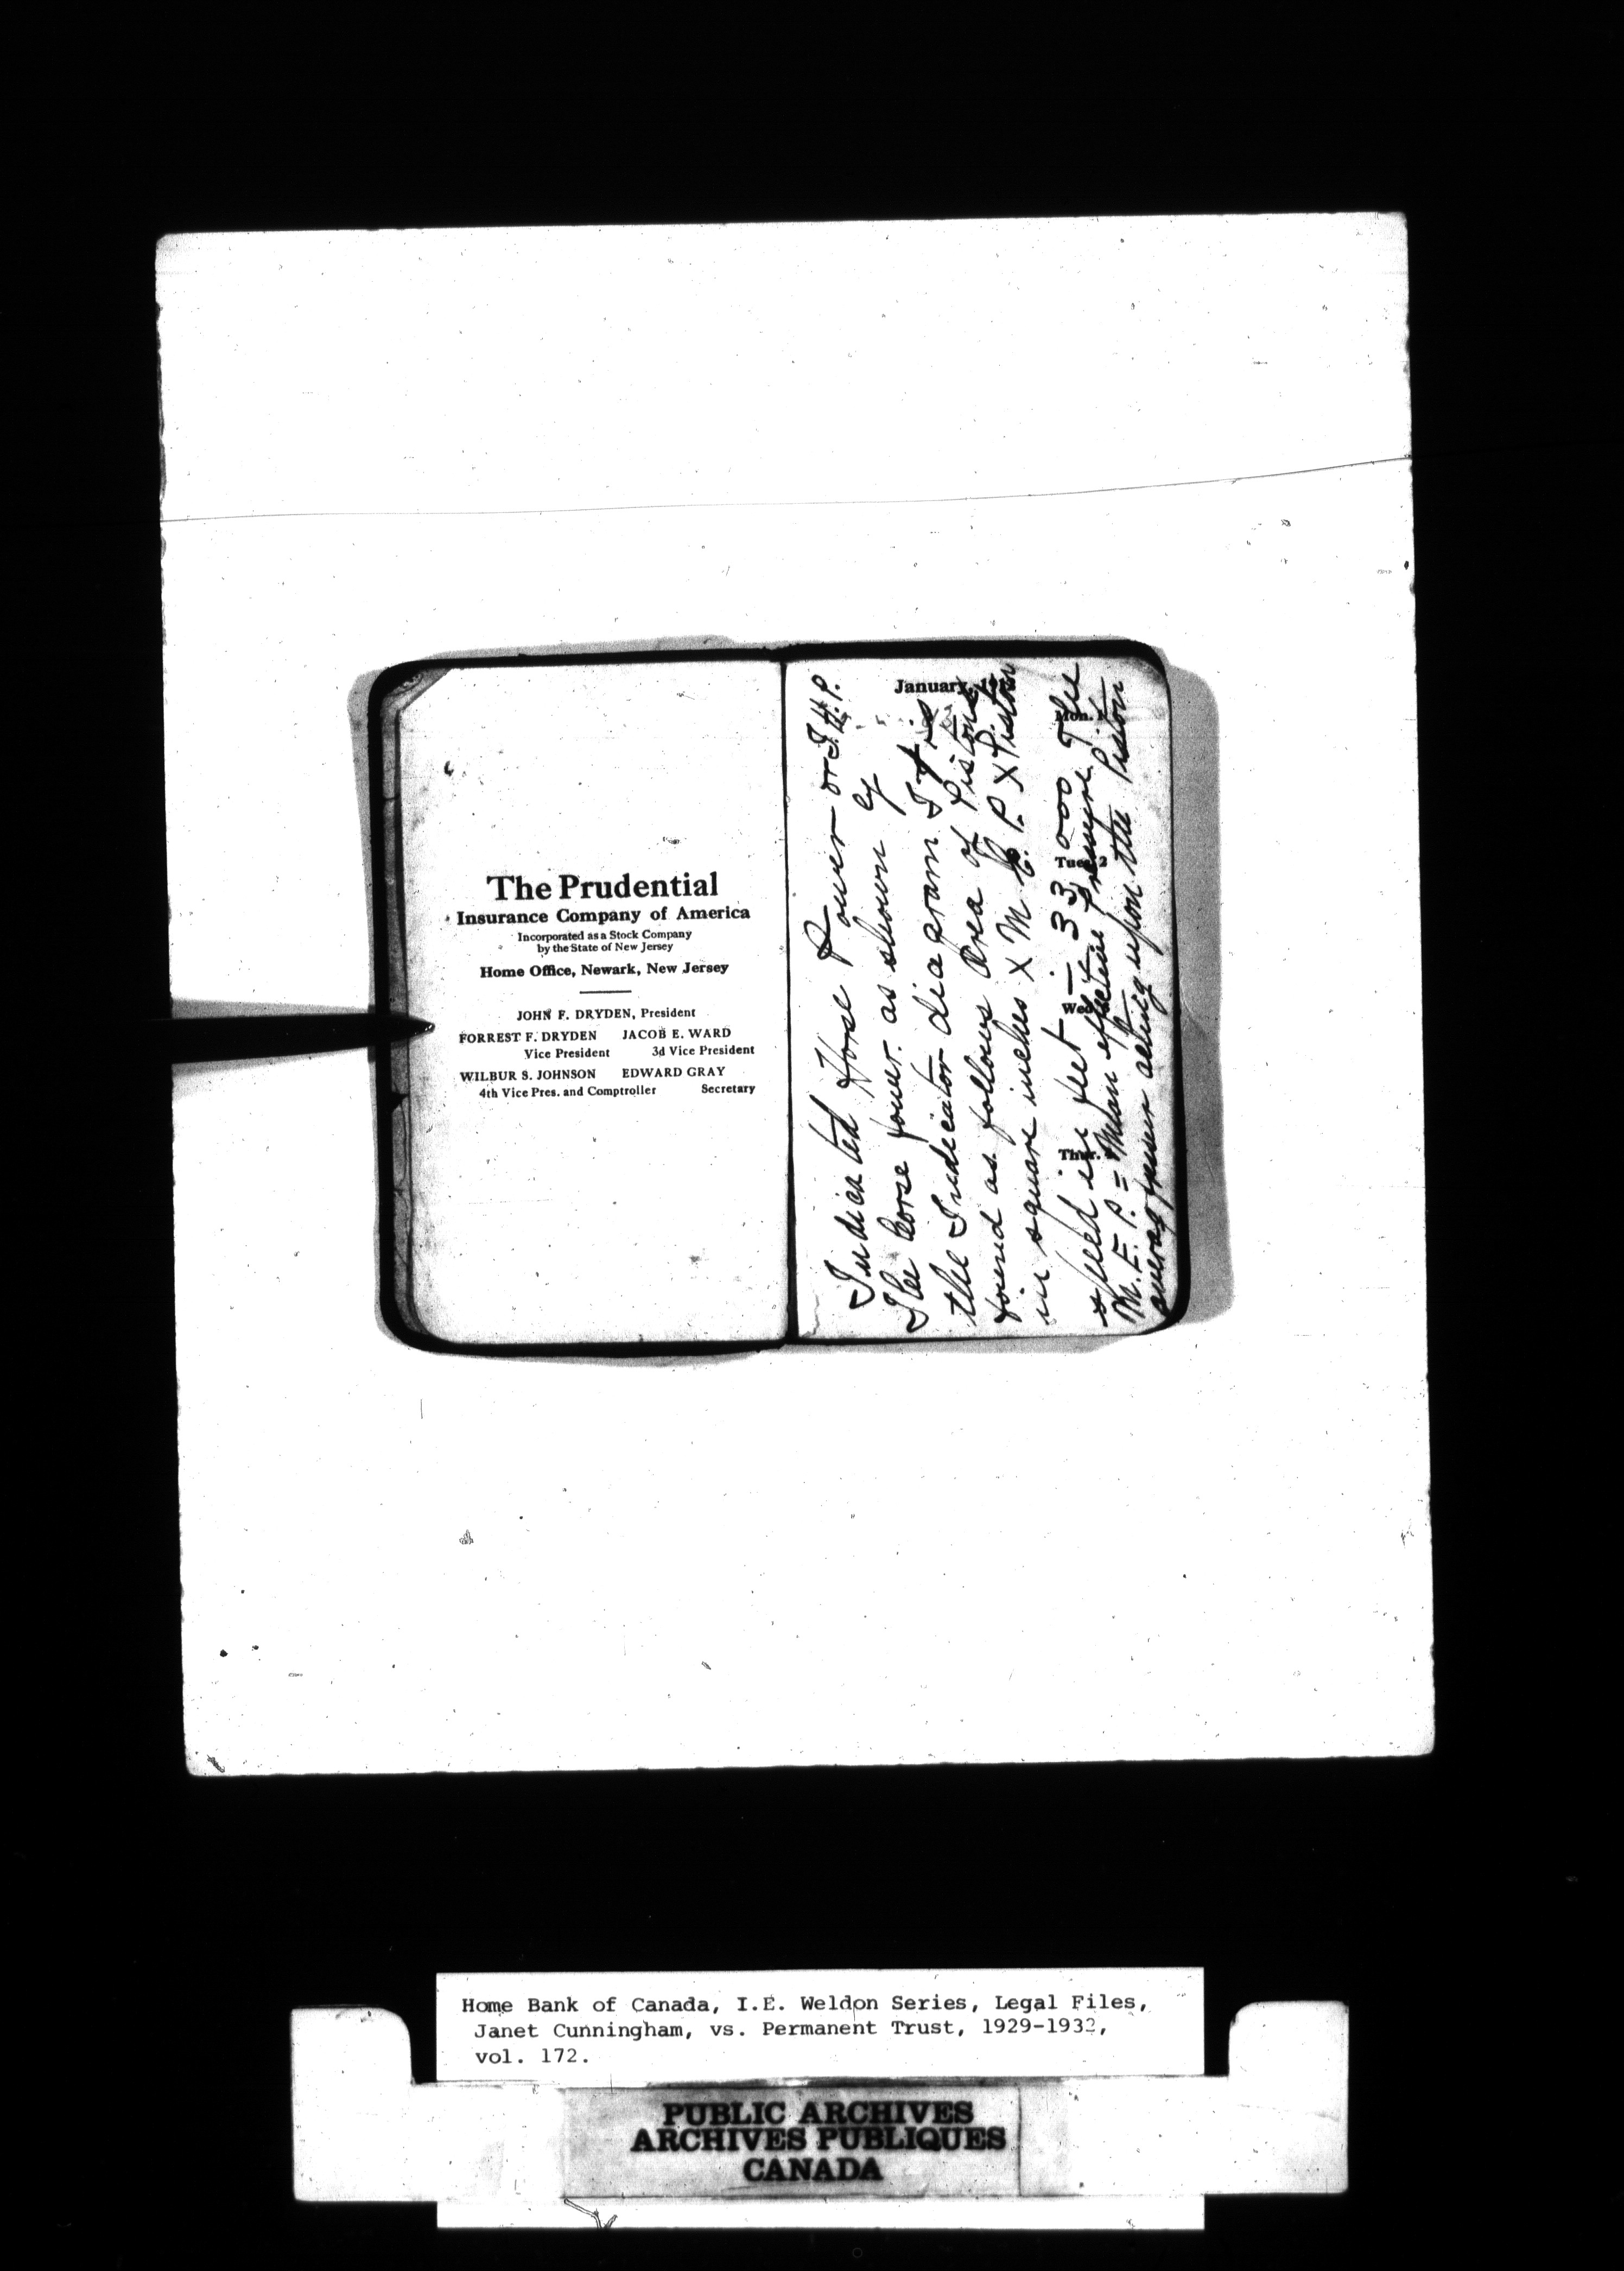 The Prudential
Insurance Company of America
Incorporated as a Stock Company
by the State of New Jersey
Home Office, Newark, New Jersey
JOHN F. DRYDEN, President
FORREST F. DRYDEN JACOB E. WARD
Vice President 3d Vice President
WILBUR S. JOHNSON EDWARD GRAY
4th Vice Pres. and Comptroller Secretary
January,
Mon. 1
Tues. 2
Wed.
Thur.
Indicated Horse Power or I.H.P.
The horse power as shown by
the Indicator diagram I
found as follows Area of Piston
in square inches x M E. P. x Piston
speed in feet ÷ 33 000 The
M. E. P. = Mean effective Pressure
pressure acting upon the Piston
Home Bank of Canada, I.E. Weldon Series, Legal Files,
Janet Cunningham, vs. Permanent Trust, 1929-1932,
vol. 172.
PUBLIC ARCHIVES
ARCHIVES PUBLIQUES
CANADA